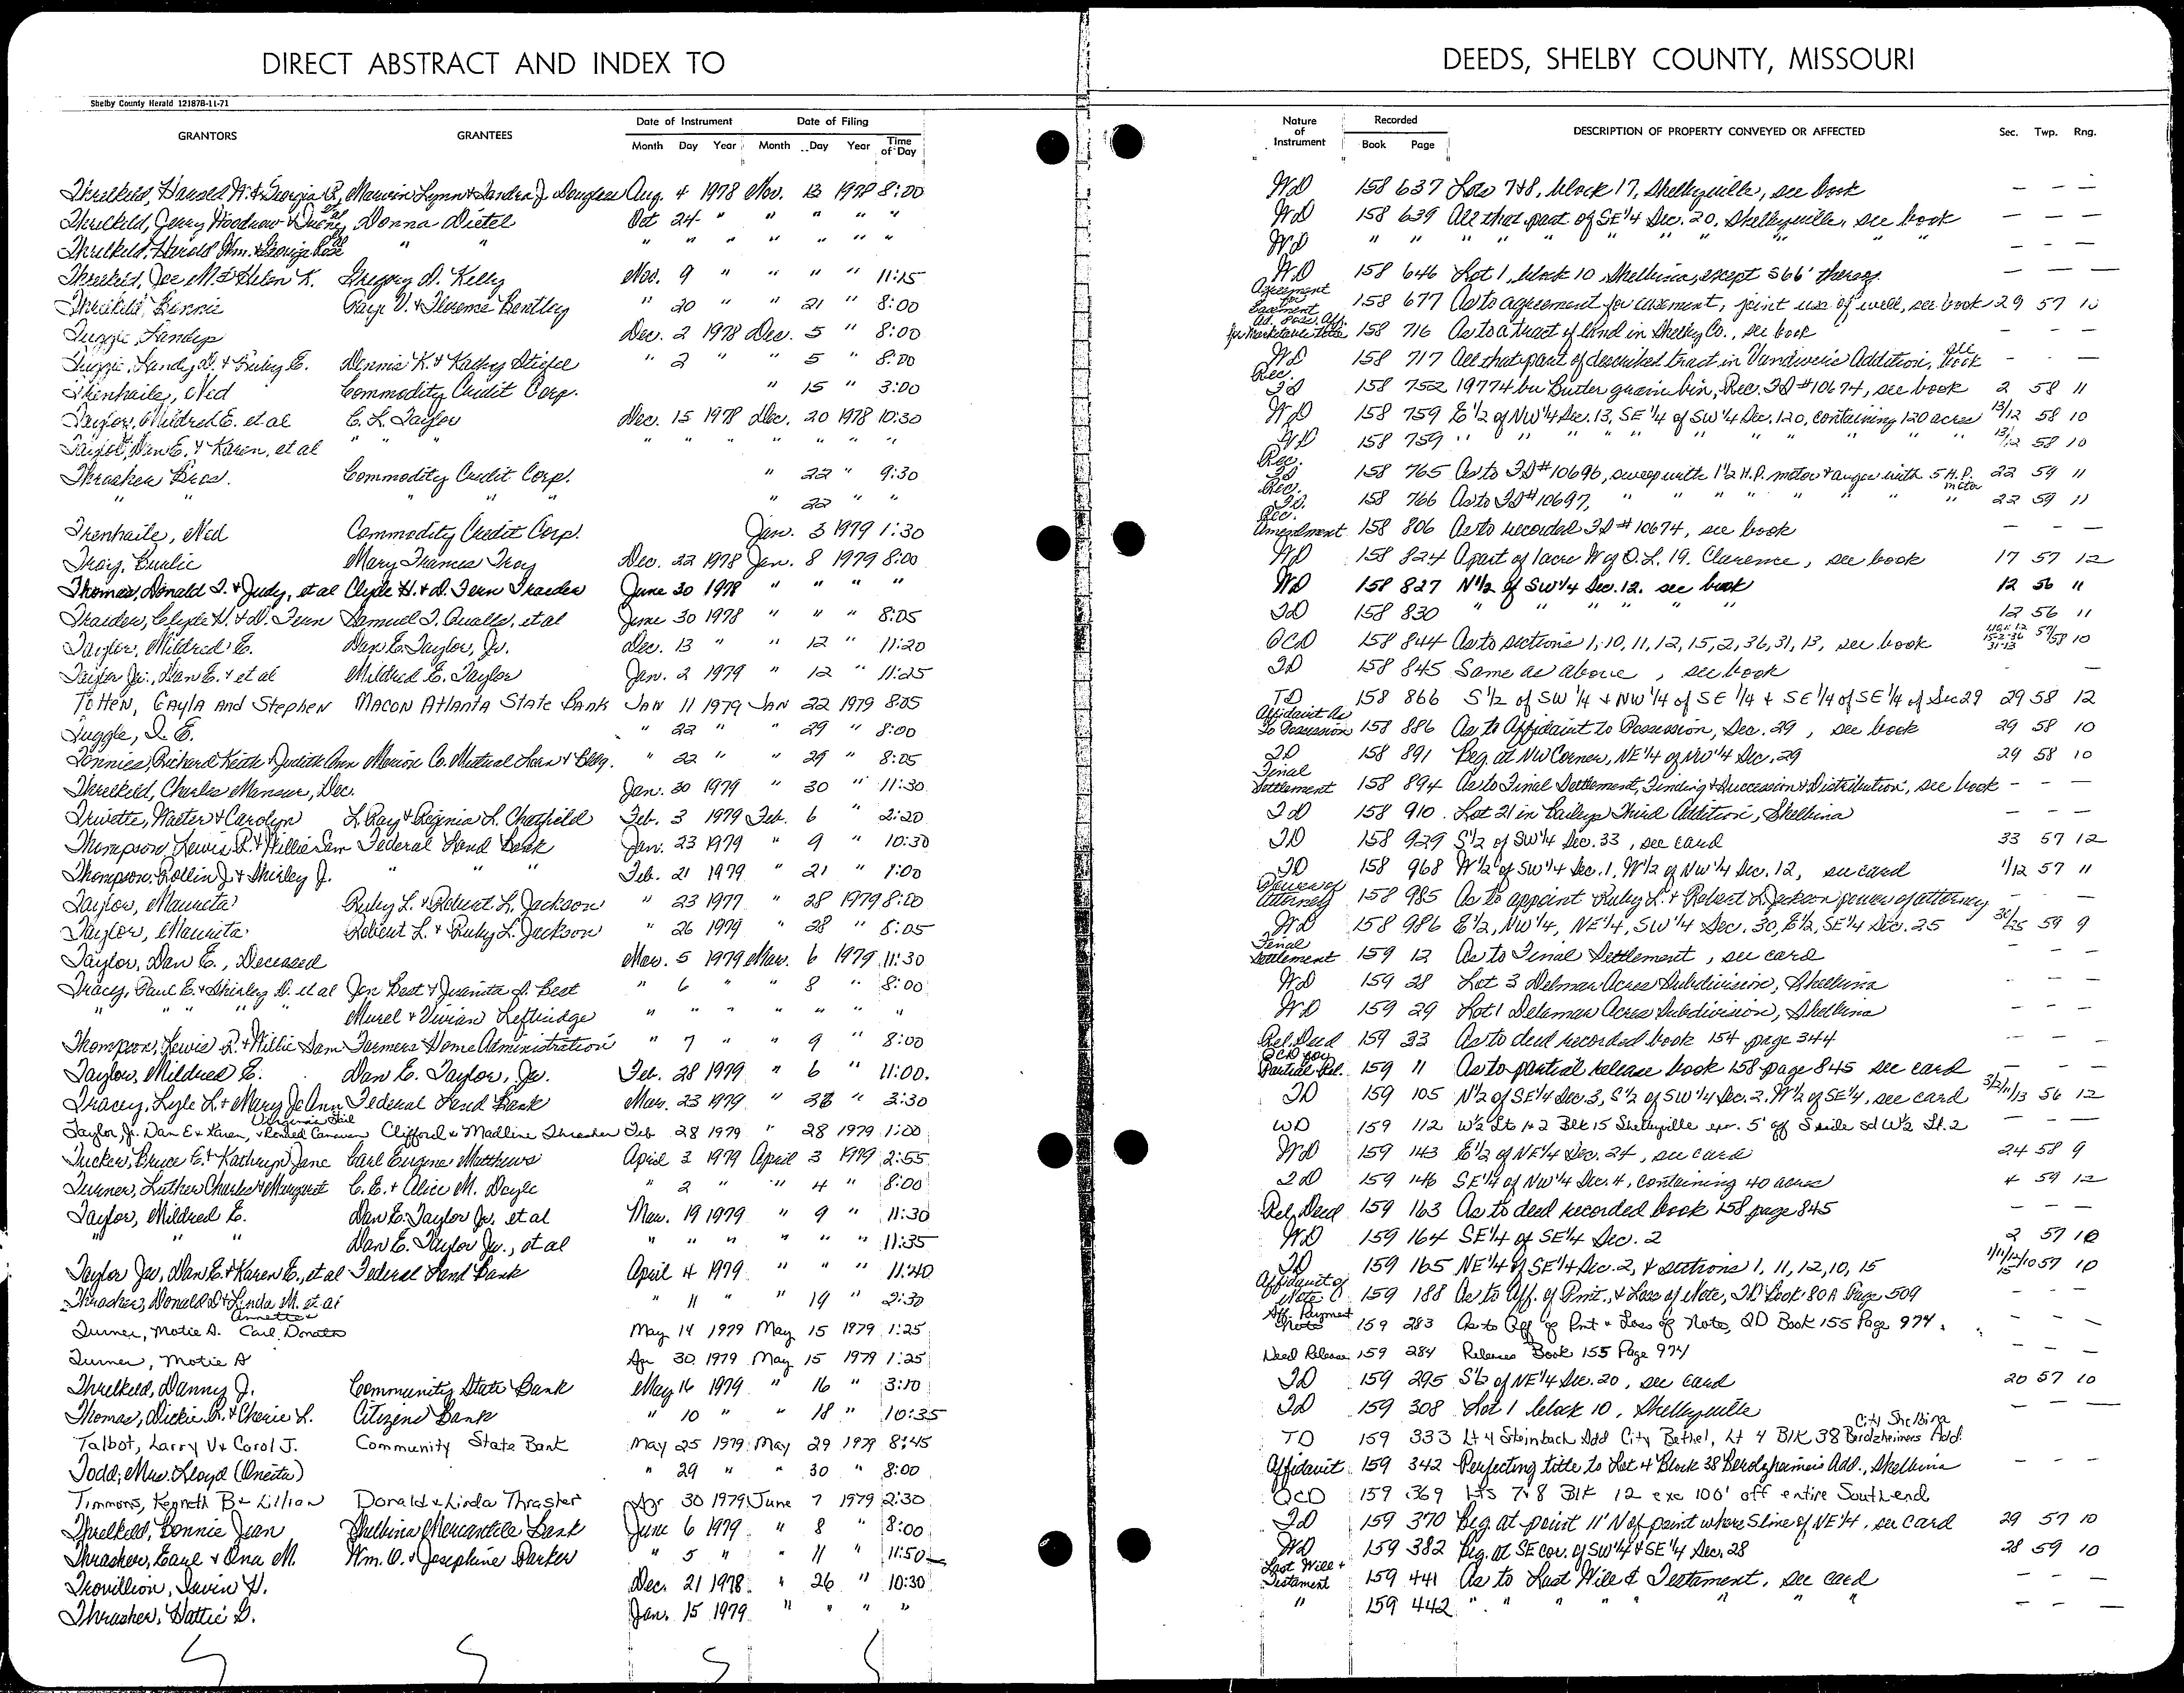 DIRECT ABSTRACT AND INDEX TO DEEDS, SHELBY COUNTY, MISSOURI
Shelby County Herald 121878-11-71
GRANTORS GRANTEES Date of Instrument Date of Filing Nature of Instrument Recorded DESCRIPTION OF PROPERTY CONVEYED OR AFFECTED Sec. Twp. Rng.
Month Day Year Month Day Year Time of Day Book Page
Threlkeld, Harold W. & Georgia R. Marvin Lynn & Sandra J Douglas Aug. 4 1978 Nov. 13 1978 8:00 WD 158 637 Lots 7&8, block 17, Shelbyville, see book — — —
Threlkeld, Jerry Woodrow & et al Donna Dietel Oct 24 " " " " " WD 158 639 All that part of SE 1/4 Sec. 20, Shelbyville, see book — — —
Threlkeld, Harold Wm. & Georgia Rose et al " " " " " " " " " WD " " " " " " " " " " " — — —
Threlkeld, Joe M. & Helen K. Gregory D. Kelly Nov. 9 " " " " 11:15 WD 158 646 Lot 1, block 10, Shelbina, except S66' thereof — — —
Threlkeld, Bonnie V. & Florence Bentley " 20 " 21 " 8:00 Agreement for Easement 158 677 As to agreement for easement, joint use of well, see book 29 57 10
Tuggle, Landy Dec. 2 1978 Dec. 5 " 8:00 Ad. Poss. Aff. for Marketable Title 158 716 As to a tract of land in Shelby Co., see book — — —
Tuggle, Landy D. & Ruby E. Dennis K. & Kathy Stiefel " 2 5 " 8:00 WD 158 717 All that part of described tract in Vandiveris Addition, see book — — —
Trenhaile, Ned Commodity Credit Corp. " 15 " 3:00 Rec. TD 158 752 19774 bu Butler grain bin, Rec. TD #10674, see book 2 58 11
Taylor, Mildred E. et al C. L. Taylor Dec. 15 1978 Dec. 20 1978 10:30 WD 158 759 E 1/2 of NW 1/4 Sec. 13, SE 1/4 of SW 1/4 Sec. 120, containing 120 acres 13/12 58 10
Taylor, Dan E. & Karen, et al " " " " " " " " " " WD 158 759 " " " " " " " " " 13/12 58 10
Thrasher Bros. Commodity Credit Corp. " 22 " 9:30 Rec. TD 158 765 As to TD #10696, sweep with 1 1/2 H.P. motor & auger with 5 H.P. motor 22 59 11
" " " " " 22 " " Rec. TD. 158 766 As to TD #10697, " " " " " " " 22 59 11
Trenhaile, Ned Commodity Credit Corp. Jan. 3 1979 1:30 Rec. Amendment 158 806 As to recorded TD #10674, see book — — —
Troy, Burlie Mary Frances Troy Dec. 22 1978 Jan. 8 1979 8:00 WD 158 824 A part of 1 acre W of O.L. 19. Clarence, see book 17 57 12
Thomas, Donald I. & Judy, et al Clyde H. & D. Fern Traeder June 30 1978 " " " " WD 158 827 N 1/2 of SW 1/4 Sec. 12. see book 12 56 11
Traeder, Clyde H. & D. Fern Samuel T. Qualls, et al June 30 1978 " " " 8:05 TD 158 830 " " " " " " 12 56 11
Taylor, Mildred E. Dan E. Taylor, Jr. Dec. 13 " " 12 " 11:20 QCD 158 844 As to sections 1, 10, 11, 12, 15, 2, 36, 31, 13, see book 57/58 10
Taylor Jr., Dan E. & et al Mildred E. Taylor Jan. 2 1979 " 12 " 11:25 TD 158 845 Same as above, see book — —
Totten, Gayla and Stephen Macon Atlanta State Bank Jan 11 1979 Jan 22 1979 8:05 TD 158 866 S 1/2 of SW 1/4 & NW 1/4 of SE 1/4 & SE 1/4 of SE 1/4 of Sec 29 29 58 12
Tuggle, I. E. " 22 " " 29 " 8:00 Affidavit As To Possession 158 886 As to Affidavit to Possession, Sec. 29, see book 29 58 10
Tonnies, Richard Keith & Judith Ann Marion Co. Mutual Loan & Bldg. " 22 " " 29 " 8:05 TD 158 891 Beg. at NW Corner, NE 1/4 of NW 1/4 Sec. 29 29 58 10
Threlkeld, Charles Mansur, Dec. Jan. 30 1979 " 30 " 11:30 Final Settlement 158 894 As to Final Settlement, Finding & Succession & Distribution, see book — — —
Trivette, Walter & Carolyn L. Ray & Reginia L. Chatfield Feb. 3 1979 Feb. 6 " 2:20 TD 158 910 Lot 21 in Baileys Third Addition, Shelbina — — —
Thompson, Lewis R. & Willie Sam Federal Land Bank Jan. 23 1979 " 9 " 10:30 TD 158 929 S 1/2 of SW 1/4 Sec. 33, see card 33 57 12
Thompson, Rollin J. & Shirley J. " " Feb. 21 1979 " 21 " 1:00 TD 158 968 W 1/2 of SW 1/4 Sec. 1, W 1/2 of NW 1/4 Sec. 12, see card 1/12 57 11
Taylor, Maurita Ruby L. & Robert L. Jackson " 23 1977 " 28 1979 8:00 Power of Attorney 158 985 As to appoint Ruby L. & Robert L. Jackson power of attorney
Taylor, Maurita Robert L. & Ruby L. Jackson " 26 1979 " 28 " 8:05 WD 158 986 E 1/2, NW 1/4, NE 1/4, SW 1/4 Sec. 30, E 1/2, SE 1/4 Sec. 25 30/25 59 9
Taylor, Dan E., Deceased Mar. 5 1979 Mar. 6 1979 11:30 Final Settlement 159 12 As to Final Settlement, see card — — —
Tracy, Paul E. & Shirley D. et al Jon Best & Juanita J. Best " 6 " " 8 " 8:00 WD 159 28 Lot 3 Delmar Acres Subdivision, Shelbina — — —
" " " " Murel & Vivian Leftridge " " " " " " " WD 159 29 Lot 1 Delmar Acres Subdivision, Shelbina — — —
Thompson, Lewis R. & Willie Sam Farmers Home Administration " 7 " " 9 " 8:00 Rel. Deed 159 33 As to deed recorded book 154 page 344 — — —
Taylor, Mildred E. Dan E. Taylor, Jr. Feb. 28 1979 " 6 " 11:00. QCD for Partial Rel. 159 11 As to partial release book 158 page 845 see card — — —
Tracey, Lyle L. & Mary Jo Ann Federal Land Bank Mar. 23 1979 " 2:30 TD 159 105 N 1/2 of SE 1/4 Sec. 3, S 1/2 of SW 1/4 Sec. 2, W 1/2 of SE 1/4, see card 3/2/11/13 56 12
Taylor, Jr. Dan E & Karen, Clifford & Madline Thrasher Feb 28 1979 " 28 1979 1:00 WD 159 112 W 1/2 Lts 1&2 Blk 15 Shelbyville exc. 5' off S side sd W 1/2 Lt. 2 — — —
Tucker, Bruce E. & Kathryn Jane Carl Eugene Matthews April 3 1979 April 3 1979 2:55 WD 159 143 E 1/2 of NE 1/4 Sec. 24, see card 24 58 9
Turner, Luther Charles & Margaret C. E. & Alice M. Doyle " 2 " " 4 " 8:00 TD 159 146 SE 1/4 of NW 1/4 Sec. 4, containing 40 acres 4 59 12
Taylor, Mildred E. Dan E. Taylor Jr. et al Mar. 19 1979 " 9 " 11:30 Rel. Deed 159 163 As to deed recorded book 158 page 845 — — —
" " " Dan E. Taylor Jr., et al " " " " " " 11:35 WD 159 164 SE 1/4 of SE 1/4 Sec. 2 2 57 10
Taylor Jr., Dan E. & Karen E., et al Federal Land Bank April 4 1979 " " " 11:40 TD 159 165 NE 1/4 of SE 1/4 Sec. 2, & sections 1, 11, 12, 10, 15 1/11/12/10 15 57 10
Thrasher, Donald D & Linda M. et al " 11 " 19 " 2:30 Affidavit of Note 159 188 As to Aff. of Pmt., & Loss of Note, TD Book 80A Page 509 — — —
Turner, Motie A. Carl Donato Annette & May 14 1979 May 15 1979 1:25 Aff. Payment Note 159 283 As to Aff of Pmt & Loss of Note, QD Book 155 Page 974. — — —
Turner, Motie A Apr 30 1979 May 15 1979 1:25 Deed Release 159 284 Release Book 155 Page 974 — — —
Threlkeld, Danny J. Community State Bank May 16 1979 " 16 " 3:10 TD 159 295 S 1/2 of NE 1/4 Sec. 20, see card 20 57 10
Thomas, Dickie R. & Cherie L. Citizens Bank " 10 " " 18 " 10:35 TD 159 308 Lot 1 block 10, Shelbyville — — —
Talbot, Larry V & Carol J. Community State Bank May 25 1979 May 29 1979 8:45 TD 159 333 Lt 4 Steinbach Add City Bethel, Lt 4 Blk 38 Berolzheimers Add. City Shelbina
Todd, Mrs. Lloyd (Oneita) " 29 " " 30 " 8:00 Affidavit 159 342 Perfecting title to Lot 4 Block 38 Berolzheimer's Add., Shelbina — — —
Timmons, Kenneth B & Lillian Donald & Linda Thrasher Apr 30 1979 June 7 1979 2:30 QCD 159 369 Lts 7&8 Blk 12 exc 100' off entire South end
Threlkeld, Bonnie Jean Shelbina Mercantile Bank June 6 1979 " 8 " 8:00 TD 159 370 Beg. at point 11' N of point where S line of NE 1/4, see card 29 57 10
Thrasher, Earl & Ona M. Wm. O. & Josephine Parker " 5 " " 11 " 11:50 WD 159 382 Beg. at SE cor. of SW 1/4 & SE 1/4 Sec. 28 28 59 10
Trovillion, Irvin H. Dec. 21 1978 " 26 " 10:30 Last Will & Testament 159 441 As to Last Will & Testament, see card — — —
Thrasher, Hattie G. Jan. 15 1979 " " " " " 159 442 " " " " " " " — — —